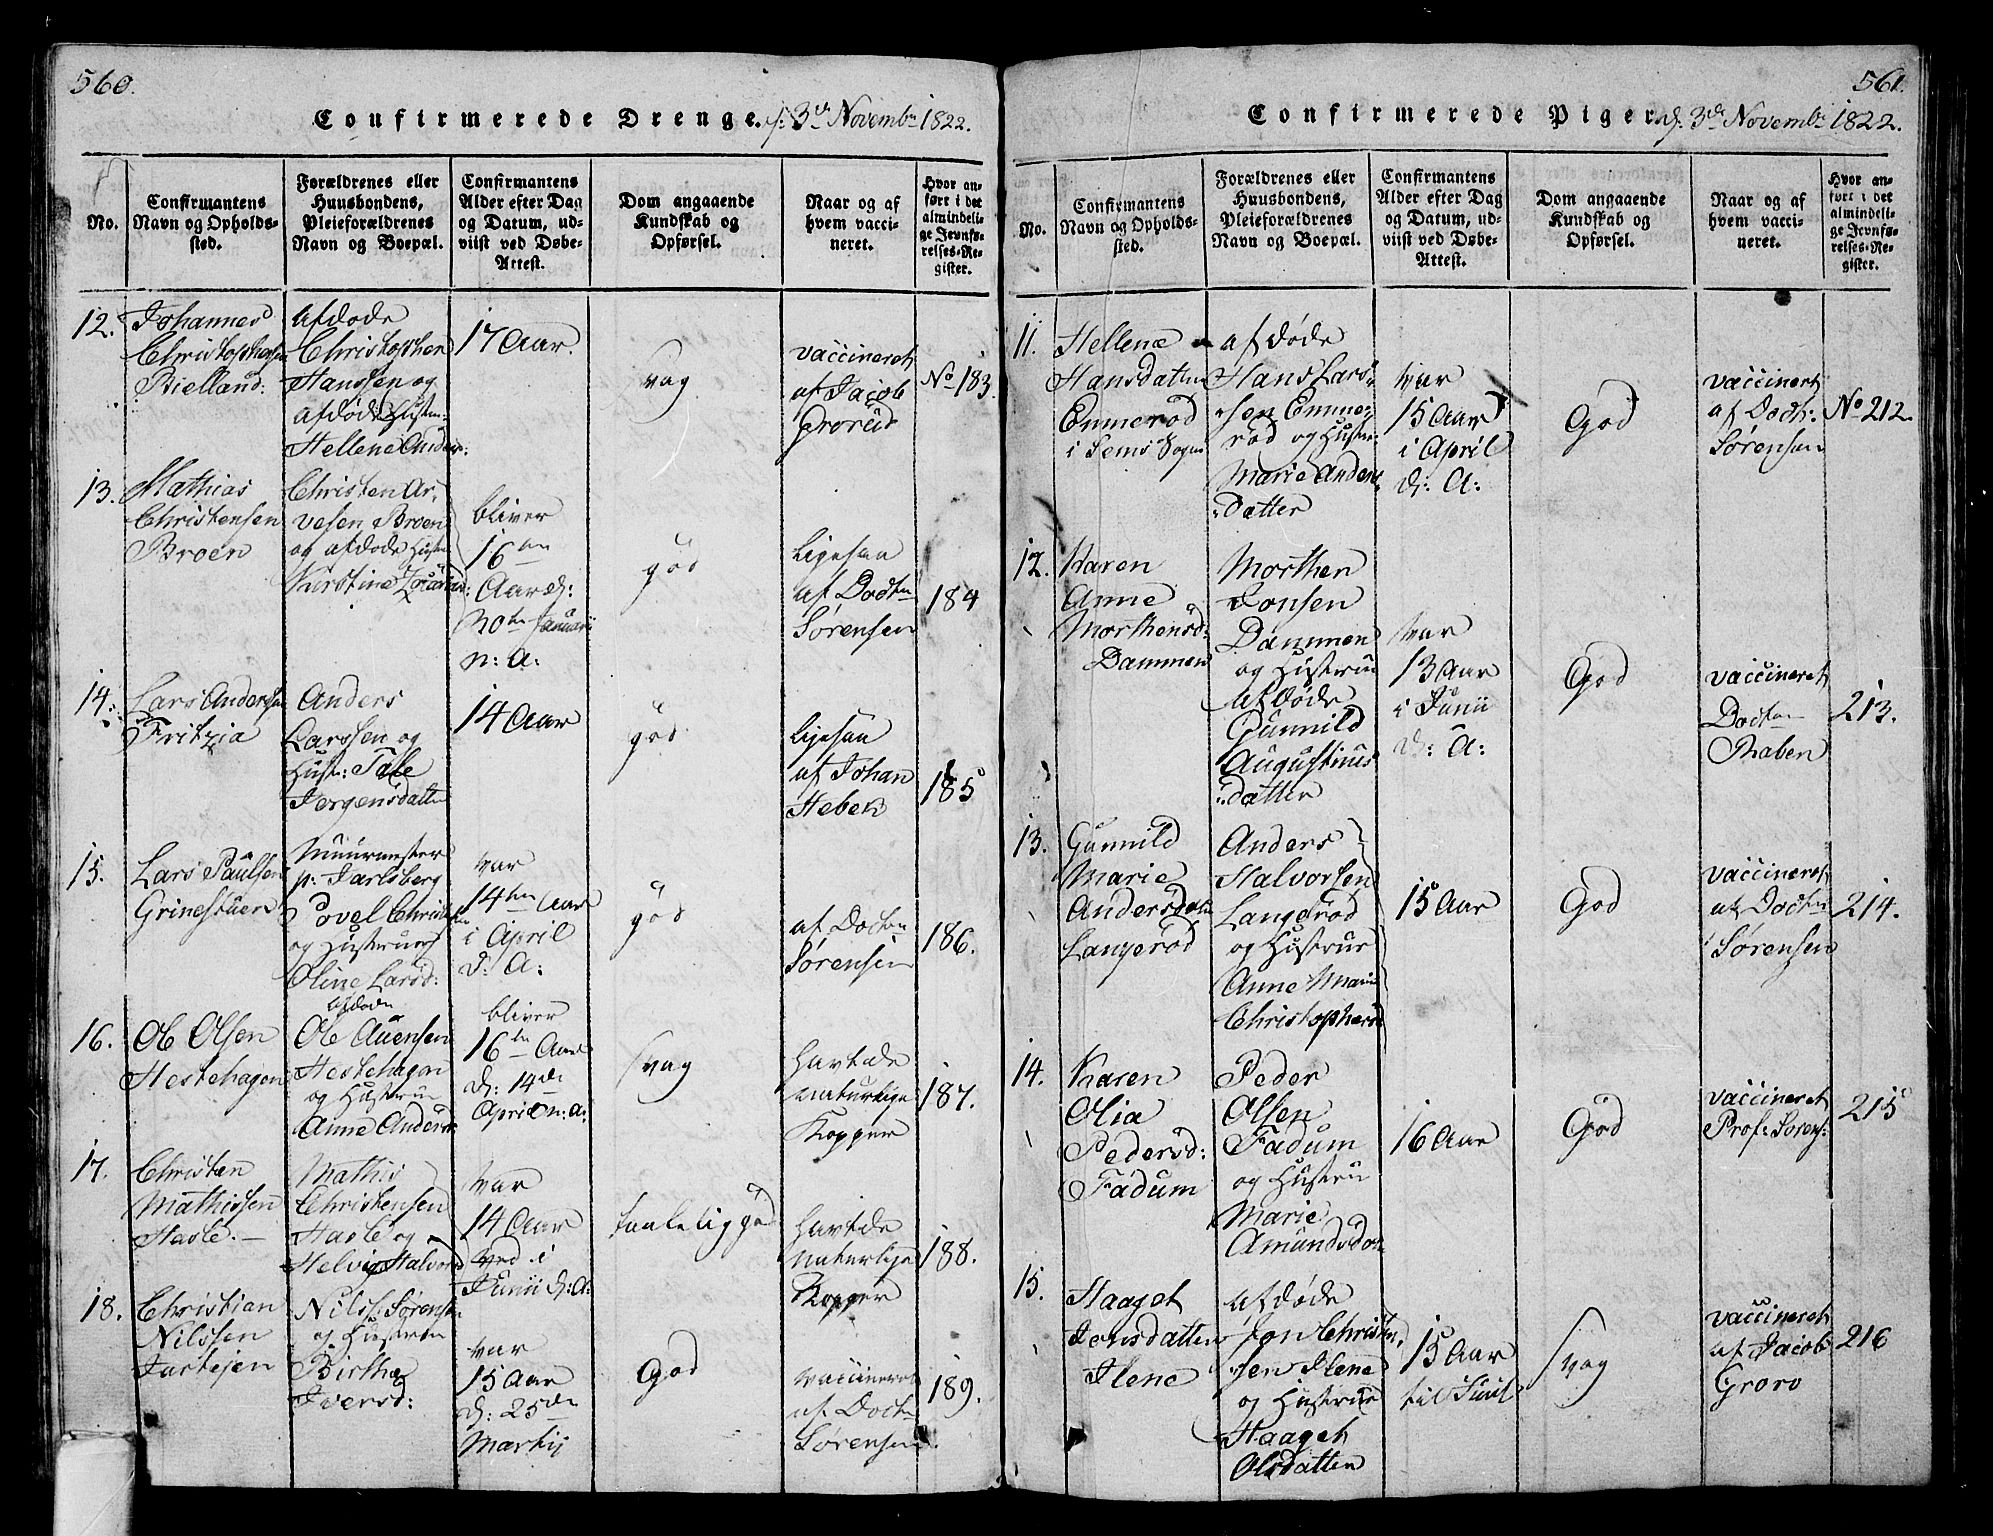 560.
Confirmerede Drenge. d: 3de Novembr 1822.
No.
Confirmantens
Navn og Opholds-
sted.
Forældrenes eller
Huusbondens,
Pleieforældrenes
Navn og Boepæl.
Confirmantens
Alder efter Dag
og Datum, ud-
viist ved Døbe-
Attest.
Dom angaaende
Kundskab og
Opførsel.
Naar og af
hvem vacci-
neret.
Hvor an-
ført i det
almindeli-
ge Jevnfø-
relses-Re-
gister.
12.
Johannes
Christophersen
Bielland:
afdøde
Christopher
Hanssen og
afdøde Hustr:
Hellene Anders:
17 Aar.
svag
vaccineret
af Jacob
Grorud
No 183.
13.
Mathias
Christensen
Broen
Christen Ar-
vesen Broen
og afdøde Hustr
Kirstine
bliver
16ten
Aar d:
30te Januarii
n: A:
god
ligesaa
af Doctr
Sørensen
184
14.
Lars Andersen
Fritzia
Anders
Larssen og
Hust: Tale
Jørgensdatter
14 Aar
god
ligesaa
af Johan
Hebek
185
15.
Lars Paulsen
Grinestuen
Muurmester
p: Jarlsberg
Povel Christensen
og Hustrue
Oline Larsd:
var
14ten Aar
i April
d: A:
god
af Doctr
Sørensen
186.
16.
Ole Olsen
Hestehagen
afdøde
Ole Auensen
Hestehagen
og Hustrue
Anne Andersd
bliver
16ten Aar
d: 14de
April n: A:
svag
havt de
naturlige
Kopper
187.
17.
Christen
Mathissen
Hasle.
Mathis
Christensen
Hasle og
Helvig Halvorsd
var
14 Aar
ved i
Junii d: A:
taalelig god
havt de
naturlige
Kopper
188.
18.
Christian
Nilssen
Jartejen
Nils Sørensen
og Hustrue
Birthe
Iversd:
var
15 Aar
d: 25de
Martij
God
vaccineret
af Doctr
Sørensen.
189.
561.
Confirmerede Piger d: 3de Novembr 1822.
No.
Confirmantens
Navn og Opholds-
sted.
Forældrenes eller
Huusbondens,
Pleieforældrenes
Navn og Boepæl.
Confirmantens
Alder efter Dag
og Datum, ud-
viist ved Døbe-
Attest.
Dom angaaende
Kundskab og
Opførsel.
Naar og af
hvem vacci-
neret.
Hvor an-
ført i det
almindeli-
ge Jevnfø-
relses-Re-
gister.
11.
Hellene
Hansdatter
Emmerod
i Sems Sogn
afdøde
Hans Lars-
sen Emme-
rod og Hustr:
Marie Anders
datter
var
15 Aar
i April
d: A:
God
vaccineret
af Doctr:
Sørensen
No 212.
12.
Karen
Anne
Morthensd:
Dammen
Morthen
Jonsen
Dammen
og Hustrue
afdøde
Gunnild
Augustinus
datter
var
13 Aar
i Junii
d: A:
God
vaccineret
Doctr
Raben
213.
13.
Gunnild
Marie
Andersdatr
Langerød
Anders
Halvorsen
Langerød
og Hustrue
Anne Marie
Christophersd
15 Aar
God
vaccineret
af Doctr
Sørensen
214.
14.
Karen
Olia
Pedersd:
Fadum
Peder
Olsen
Fadum
og Hustru
Marie
Amundsdatr
16 Aar
God
vaccineret
Prof: Sørens:
215
15.
Haaget
Jonsdatter
Ilene
afdøde
Jon Christen-
sen Ilene
og Hustrue
Haaget
Olsdatter
15 Aar
til Juul
svag
vaccineret
af Jacob
Groro
216